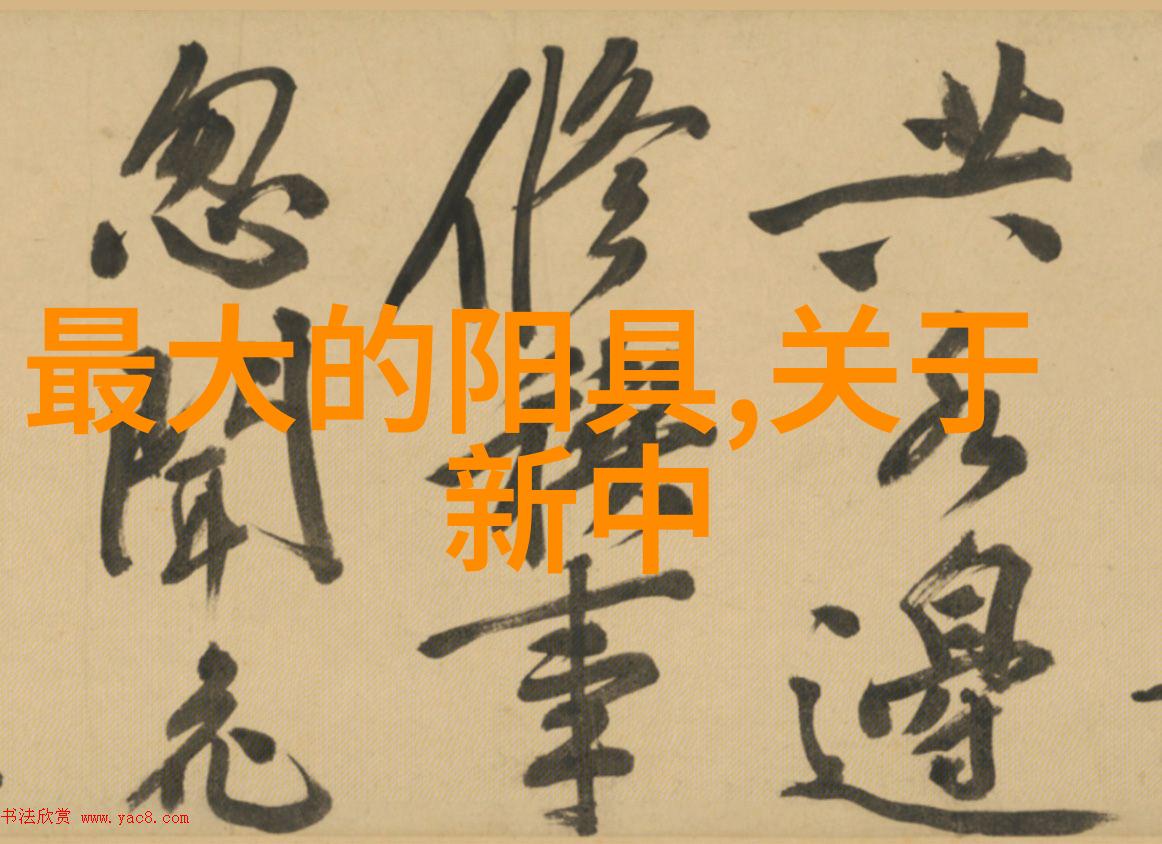 最大的阳具,关于
新中
共邊
修禊事
忽聞
书法欣赏 www.yac8.com